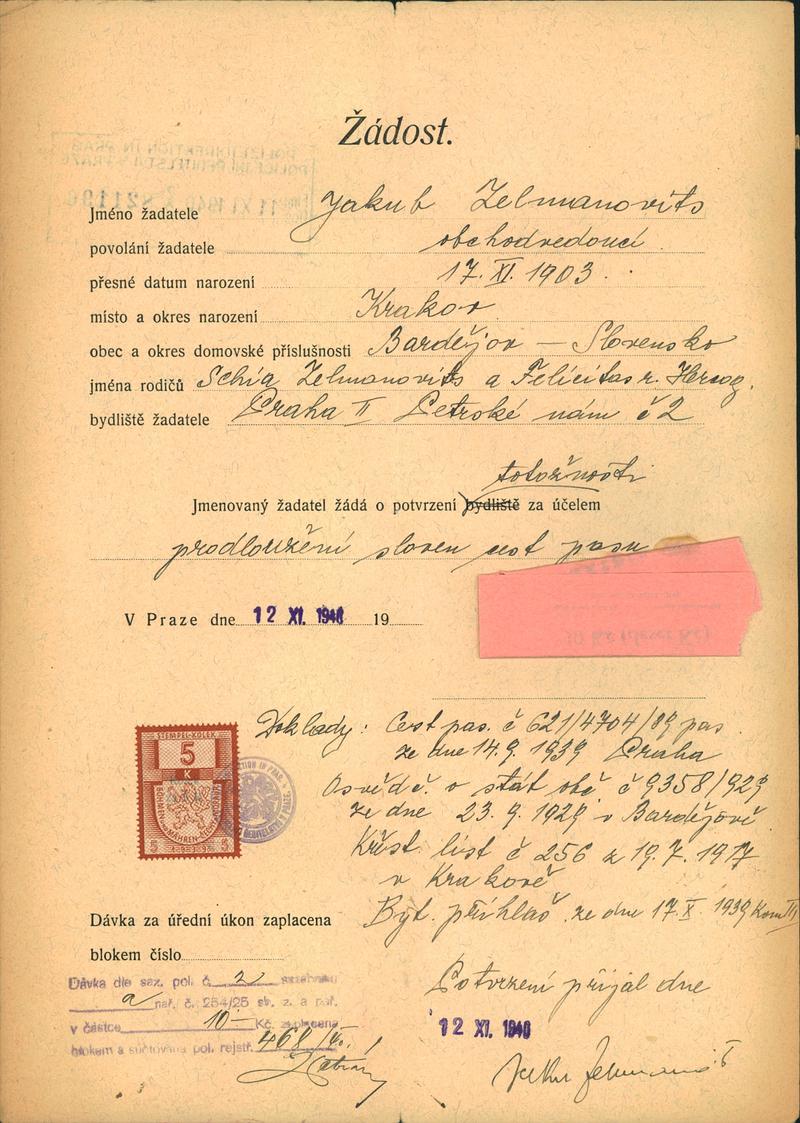 Žádost.
Jméno žadatele Jakub Zelmanovits
povolání žadatele obchodvedoucí
přesné datum narození 17. XI. 1903.
místo a okres narození Krakov
obec a okres domovské příslušnosti Bardějov — Slovensko
jména rodičů Schia Zelmanovits a Felicitas r. Herzog.
bydliště žadatele Praha II Petrské nám č 2
totožnosti
Jmenovaný žadatel žádá o potvrzení bydliště za účelem
prodloužení sloven cest pasu
V Praze dne 12 XI. 1940 19
10 Kč (deset Kč)
Doklady: Cest pas. č 621/4704/39 pas
ze dne 14. 9. 1939 Praha
STEMPEL-KOLEK
5
K
BÖHMEN UND MÄHREN
5 5
Osvědč. o stát obč č 9358/929
ze dne 23. 9. 1929 v Bardějově
Křest. list č 256 z 19. 7. 1917
v Krakově
Byt. přihláš. ze dne 17. X. 1939 Kom II
Dávka za úřední úkon zaplacena
blokem číslo
Potvrzení přijal dne
12 XI. 1940
Dávka dle saz. pol. č. 2 sazebníku
a nař. č. 254/25 sb. z. a nař.
v částce 10- Kč zaplacena
blokem a súčtována pol. rejstř. 468